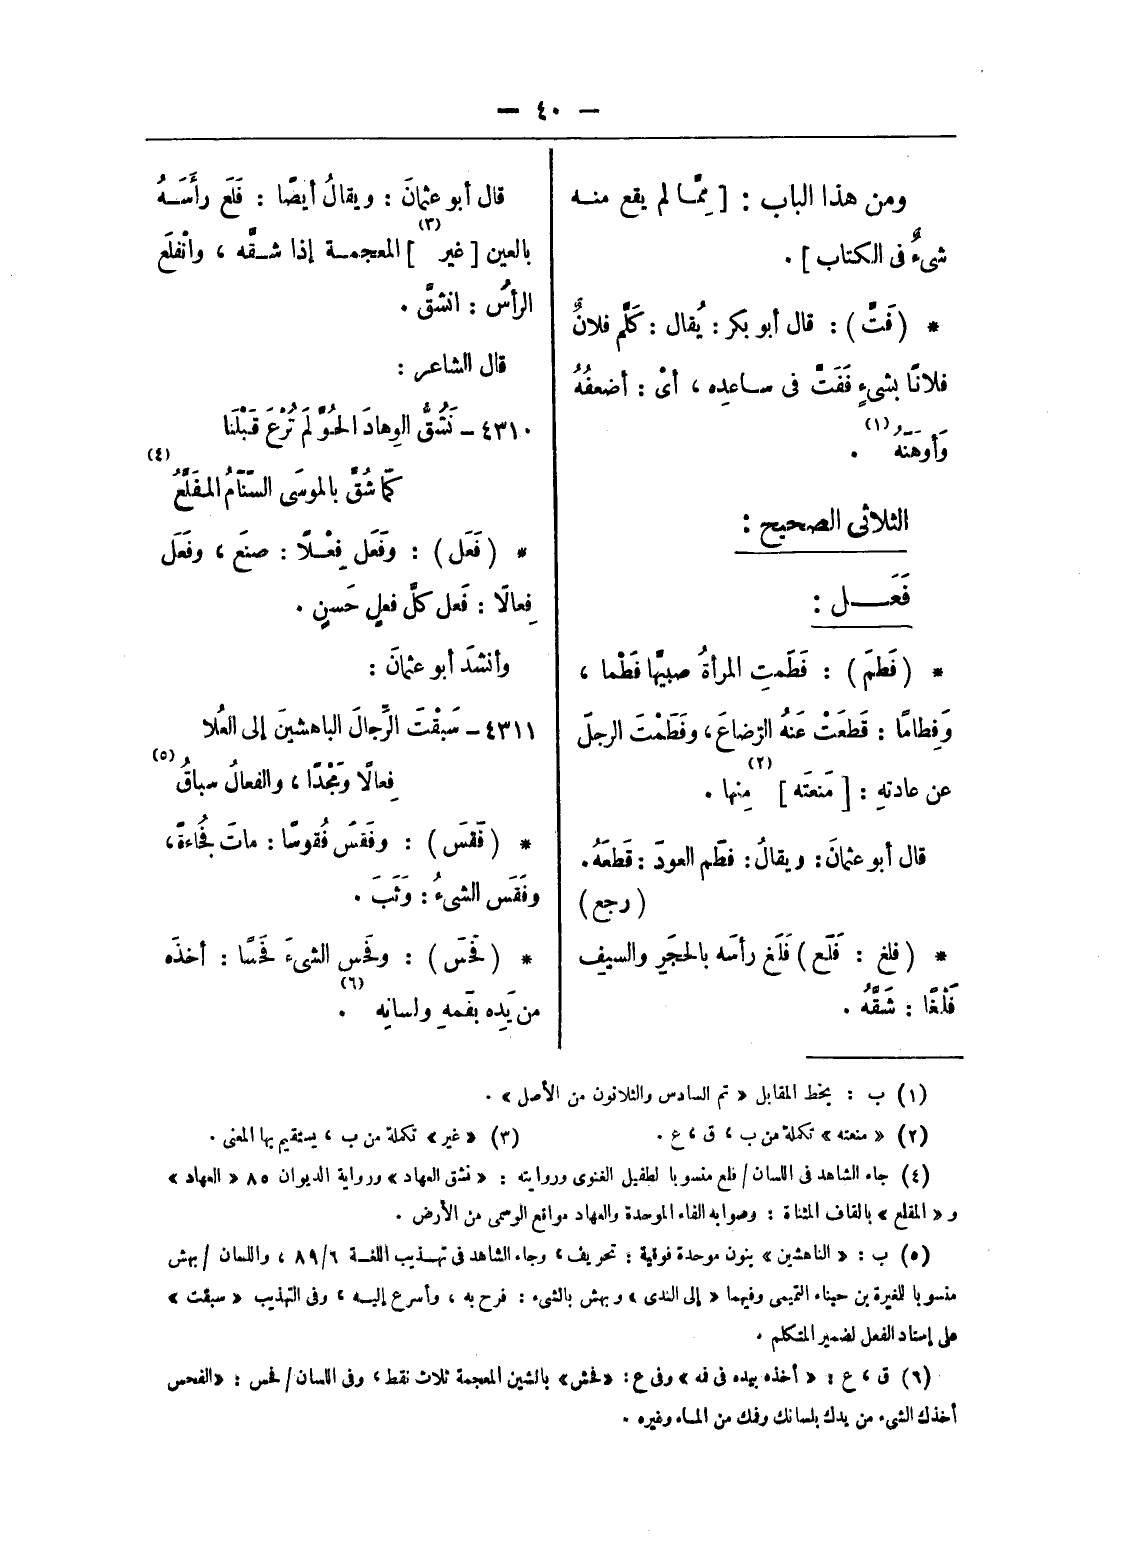 — ٤٠ —
ومن هذا الباب : [ مِمَّا لم يقع منه
شىءٌ فى الكتاب ] .
* ( فَتَّ ) : قال أبو بكر : يُقال : كَلَّم فلانٌ
فلانًا بشىءٍ فَفَتَّ فى ساعدِه ، أىْ : أضعفُهُ
وَأَوهَنَهُ (١) .
الثلاثى الصحيح :
فَعَــل :
* ( فَطمَ ) : فَطَمتِ المرأةُ صبيَّها فَطْما ،
وَفِطامًا : قَطعَتْ عَنهُ الرّضاعَ ، وفَطَمْتَ الرجلَ
عن عادتهِ : [ مَنعتَه ] (٢) مِنها .
قال أبو عثمانَ : ويقالُ : فطَم العودَ : قَطَعَهُ .
( رجع )
* ( فلغ : فَلَع ) فَلَغ رأسَه بالحجَرِ والسيفِ
فَلْغًا : شَقَّهُ .
قال أبو عثمانَ : ويقالُ أيضًا : فَلَع رأَسَهُ
بالعين [ غير (٣) ] المعجمة إذا شقَّه ، وانْفلَع
الرأسُ : انشقَّ .
قال الشاعر :
٤٣١٠ – نَشُقُّ الوِهادَ الحُوَّ لَمْ تُرْعَ قَبْلَنَا
كَمَا شُقَّ بالموسَى السَّنَامُ المفَلَّعُ (٤)
* ( فَعَل ) : وفَعَل فِعْلًا : صنَع ، وفَعَل
فِعالًا : فَعل كلَّ فعلٍ حَسنٍ .
وأنشدَ أبو عثمانَ :
٤٣١١ – سَبقْتَ الرِّجالَ الباهشينَ إلى العُلا
فِعالًا ومَجْدًا ، والفعالُ سباقُ (٥)
* ( فَقسَ ) : وفَقسَ فُقوسًا : ماتَ فُجَاءةً ،
وفَقَس الشىءُ : وَثَبَ .
* ( فحَسَ ) : وفحَس الشىءَ فَحْسًا : أخذَه
من يَدِه بفَمهِ ولسانِه (٦) .
(١) ب : بخط المقابل « تم السادس والثلاثون من الأصل » .
(٢) « منعته » تكملة من ب ، ق ، ع .
(٣) « غير » تكملة من ب ، يستقيم بها المعنى .
(٤) جاء الشاهد فى اللسان / فلع منسوبا لطفيل الغنوى وروايته : « نشق العهاد » ورواية الديوان ٨٥ « العهاد »
و « المقلع » بالقاف المثناة : وصوابه الفاء الموحدة والعهاد مواقع الوسمى من الأرض .
(٥) ب : « الناهشين » بنون موحدة فوقية : تحريف ، وجاء الشاهد فى تهذيب اللغة ٨٩/٦ ، واللسان / بهش
منسوبا للمغيرة بن حبناء التميمى وفيهما « إلى الندى » وبهش بالشىء : فرح به ، وأسرع إليه ، وفى التهذيب « سبقت »
على إسناد الفعل لضمير المتكلم .
(٦) ق ، ع : « أخذه بيده فى فه » وفى ع : « فحش » بالشين المعجمة ثلاث نقط ، وفى اللسان / فحس : « الفحس
أخذك الشىء من يدك بلسانك وفمك من الماء وغيره .